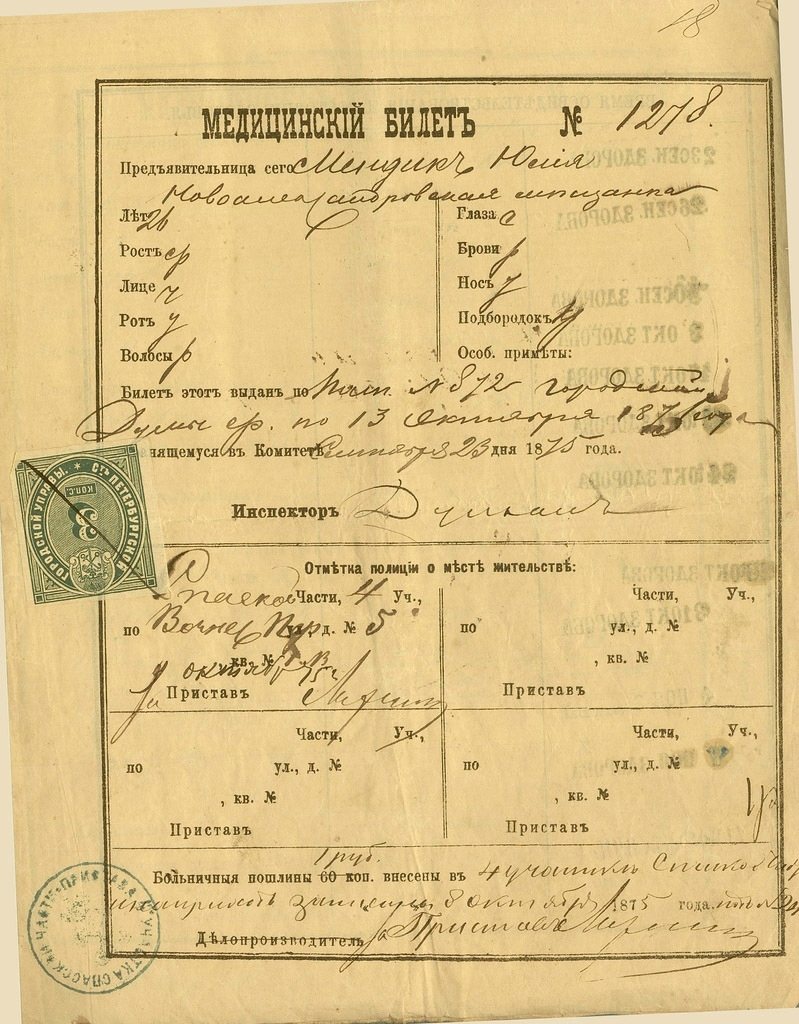 18
МЕДИЦИНСКІЙ БИЛЕТЪ № 1278.
Предъявительница сего Мендикъ Юлія
Новоалександровская мѣщанка
Лѣтъ 26 Глаза с
Ростъ ср Брови р
Лице ч Носъ у
Ротъ у Подбородокъ у
Волосы р Особ. примѣты:
Билетъ этотъ выданъ по № 872 городской
Думы ср. по 13 Октября 187 года
нящемуся въ Комитетѣ Сентября 23 дня 1875 года.
Инспекторъ
С.ТЪ ПЕТЕРБУРГСКОЙ ГОРОДСКОЙ УПРАВЫ.
3 КОП. С.
Отмѣтка полиціи о мѣстѣ жительствѣ:
Спасской Части, 4 Уч., Части, Уч.,
по ул., д. № 5 по ул., д. №
кв. № , кв. №
октяб 75 г
За Приставъ Приставъ
Части, Уч., Части, Уч.,
по ул., д. № по ул., д. №
, кв. № , кв. №
Приставъ Приставъ
1 руб.
Больничныя пошлины 60 коп. внесены въ 4 участкъ Спасской
записаны 8 октября 1875 года.
Дѣлопроизводитель за Приставъ
ПРИСТАВА 4 УЧАСТКА СПАССКОЙ ЧАСТИ